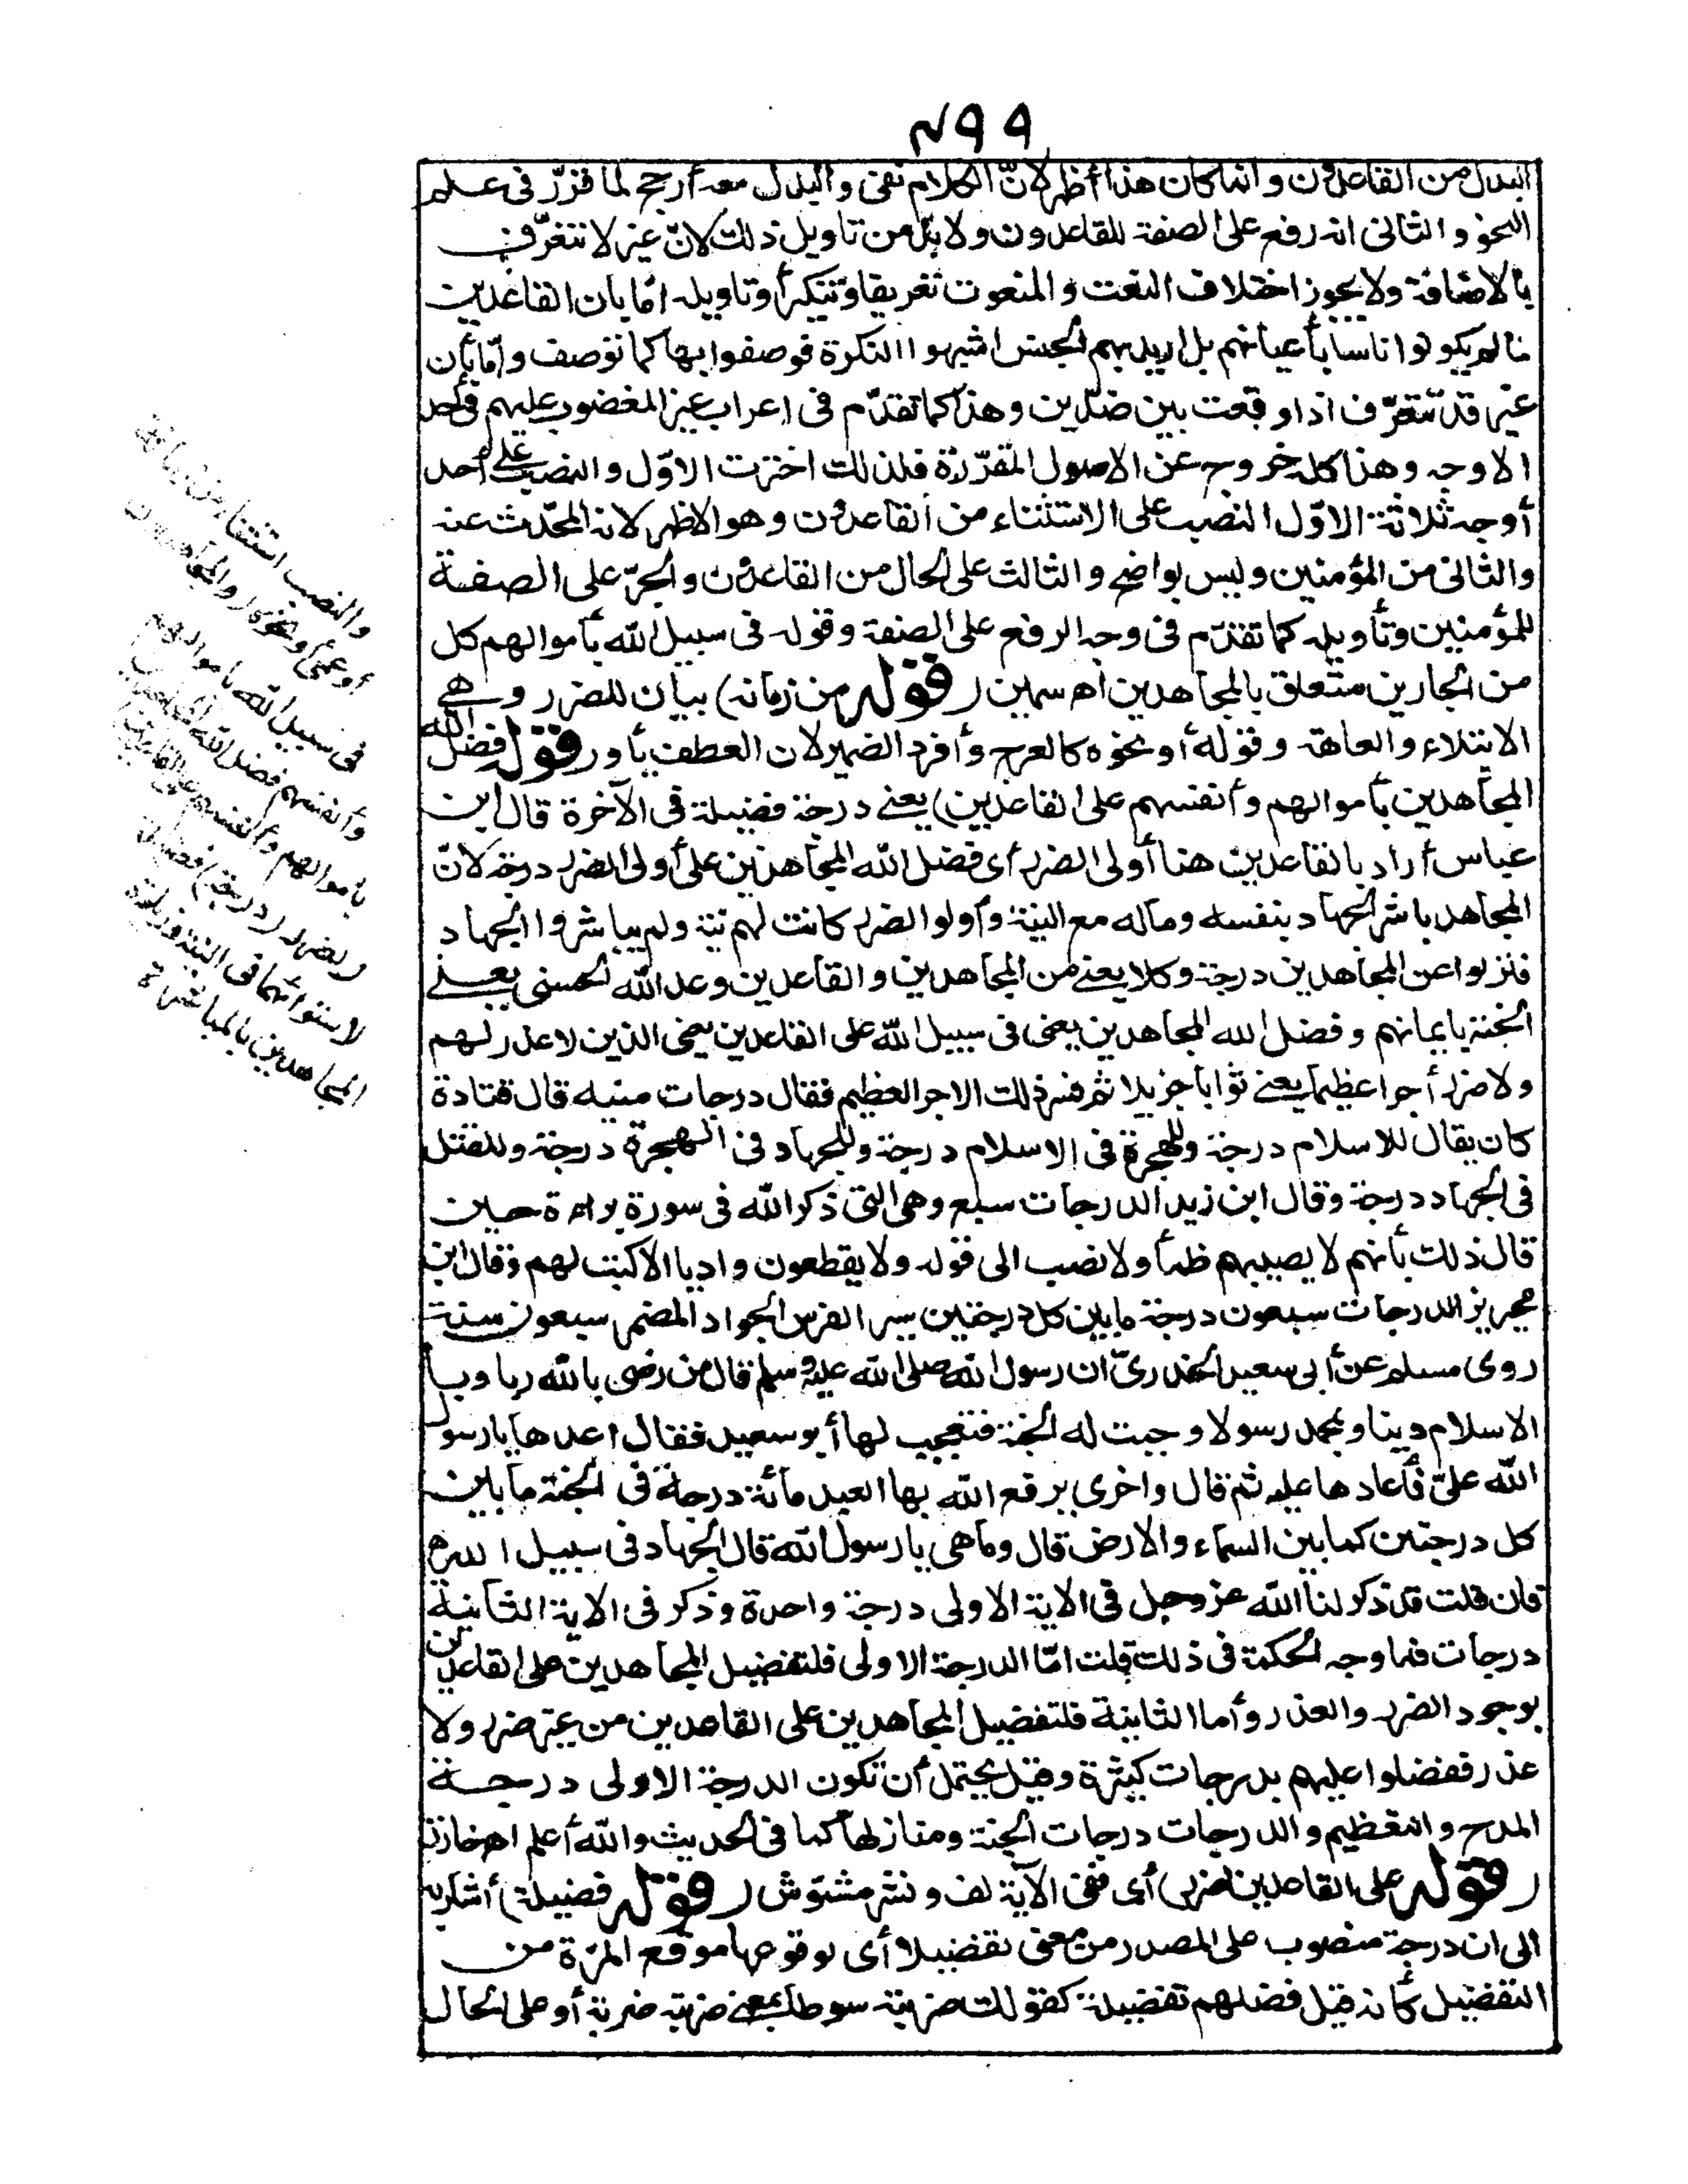 ٤٩٩
البدل من القاعدون وانما كان هذا أظهر لانّ الكلام نفى والبدل معه أرجح لما قرّر فى علم
النحو والثانى انه رفع على الصفة للقاعدون ولا بدّ من تاويل ذلك لانّ غير لا تتعرّف
بالاضافة ولا يجوز اختلاف النعت والمنعوت تعريفا وتنكيرا وتاويله امّا بان القاعدين
لما لم يكونوا ناسا بأعيانهم بل اريد بهم الجنس اشبهوا النكرة فوصفوا بها كما توصف وامّا بأن
غير قد تتعرّف اذا وقعت بين ضدّين وهذا كما تقدّم فى اعراب غير المغضوب عليهم فى أحد
الاوجه وهذا كله خروج عن الاصول المقرّرة فلذلك اخترت الاوّل والنصب على أحد
أوجه ثلاثة الاوّل النصب على الاستثناء من القاعدون وهو الاظهر لانه المحدّث عنه
والثانى من المؤمنين وليس بواضح والثالث على الحال من القاعدون والجرّ على الصفة
للمؤمنين وتأويله كما تقدّم فى وجه الرفع على الصفة وقوله فى سبيل الله بأموالهم كل
من الجارين متعلق بالمجاهدين اه سمين (قوله من زمانة) بيان للضرر وهى
الابتلاء والعاهة وقوله أو نحوه كالعرج وأفرد الضمير لان العطف بأو (قوله فضل الله
المجاهدين بأموالهم وأنفسهم على القاعدين) يعنى درجة فضيلة فى الآخرة قال ابن
عباس أراد بالقاعدين هنا أولى الضرر أى فضل الله المجاهدين على أولى الضرر درجة لانّ
المجاهد باشر الجهاد بنفسه وماله مع النية وأولوا الضرر كانت لهم نية ولم يباشروا الجهاد
فنزلوا عن المجاهدين درجة وكلا يعنى من المجاهدين والقاعدين وعد الله الحسنى يعنى
الجنة بايمانهم وفضل الله المجاهدين يعنى فى سبيل الله على القاعدين يعنى الذين لا عذر لهم
ولا ضرر أجرا عظيما يعنى ثوابا جزيلا ثم فسر ذلك الاجر العظيم فقال درجات منه قال قتادة
كان يقال للاسلام درجة وللهجرة فى الاسلام درجة وللجهاد فى الهجرة درجة وللقتل
فى الجهاد درجة وقال ابن زيد الدرجات سبع وهى التى ذكر الله فى سورة براءة حين
قال ذلك بأنهم لا يصيبهم ظمأ ولا نصب الى قوله ولا يقطعون واديا الا كتب لهم وقال ابن
محيريز الدرجات سبعون درجة ما بين كل درجتين سير الفرس الجواد المضمر سبعون سنة
روى مسلم عن أبى سعيد الخدرىّ ان رسول الله صلى الله عليه وسلم قال من رضى بالله ربا وبا
الاسلام دينا وبمحمد رسولا وجبت له الجنة فتعجب لها أبو سعيد فقال اعدها يا رسول
الله علىّ فأعادها عليه ثم قال واخرى يرفع الله بها العبد مائة درجة فى الجنة ما بين
كل درجتين كما بين السماء والارض قال وما هى يا رسول الله قال الجهاد فى سبيل الله
فان قلت قد ذكر لنا الله عز وجل فى الاية الاولى درجة واحدة وذكر فى الاية الثانية
درجات فما وجه الحكمة فى ذلك قلت امّا الدرجة الاولى فلتفضيل المجاهدين على القاعدين
بوجود الضرر والعذر وأما الثانية فلتفضيل المجاهدين على القاعدين من غير ضرر ولا
عذر ففضلوا عليهم بدرجات كثيرة وقيل يحتمل أن تكون الدرجة الاولى درجة
المدح والتعظيم والدرجات درجات الجنة ومنازلها كما فى الحديث والله أعلم اه خازن
(قوله على القاعدين لضرر) أى ففى الآية لف ونشر مشوّش (قوله فضيلة) أشار به
الى ان درجة منصوب على المصدر من معنى تفضيلا أى لوقوعها موقع المرّة من
التفضيل كأنه قيل فضلهم تفضيلة كقولك ضربته سوطا بمعنى ضربته ضربة أو على الحال
والنصب استثناء من زمانة
أو عمى أو نحوه (والمجاهدون
فى سبيل الله بأموالهم
وأنفسهم فضل الله المجاهدين
بأموالهم وأنفسهم على القاعدين)
لضرر (درجة) فضيلة
لاستوائهما فى النية وزيادة
المجاهدين بالمباشرة